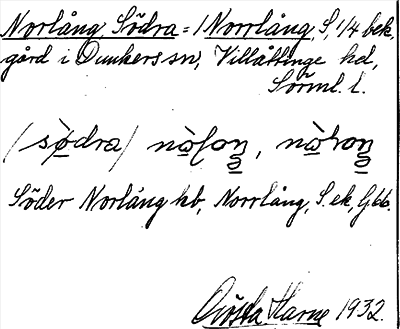 Norlång, Södra = / Norrlång, S, 1/4 bek.
gård i Dunkers sn, Villåttinge hd,
Sörml. l.
(sø̀dra) nòlоŋ, nòroŋ
Söder Norlång kb, Norrlång, S. ek, G66.
Gösta Harne 1932.